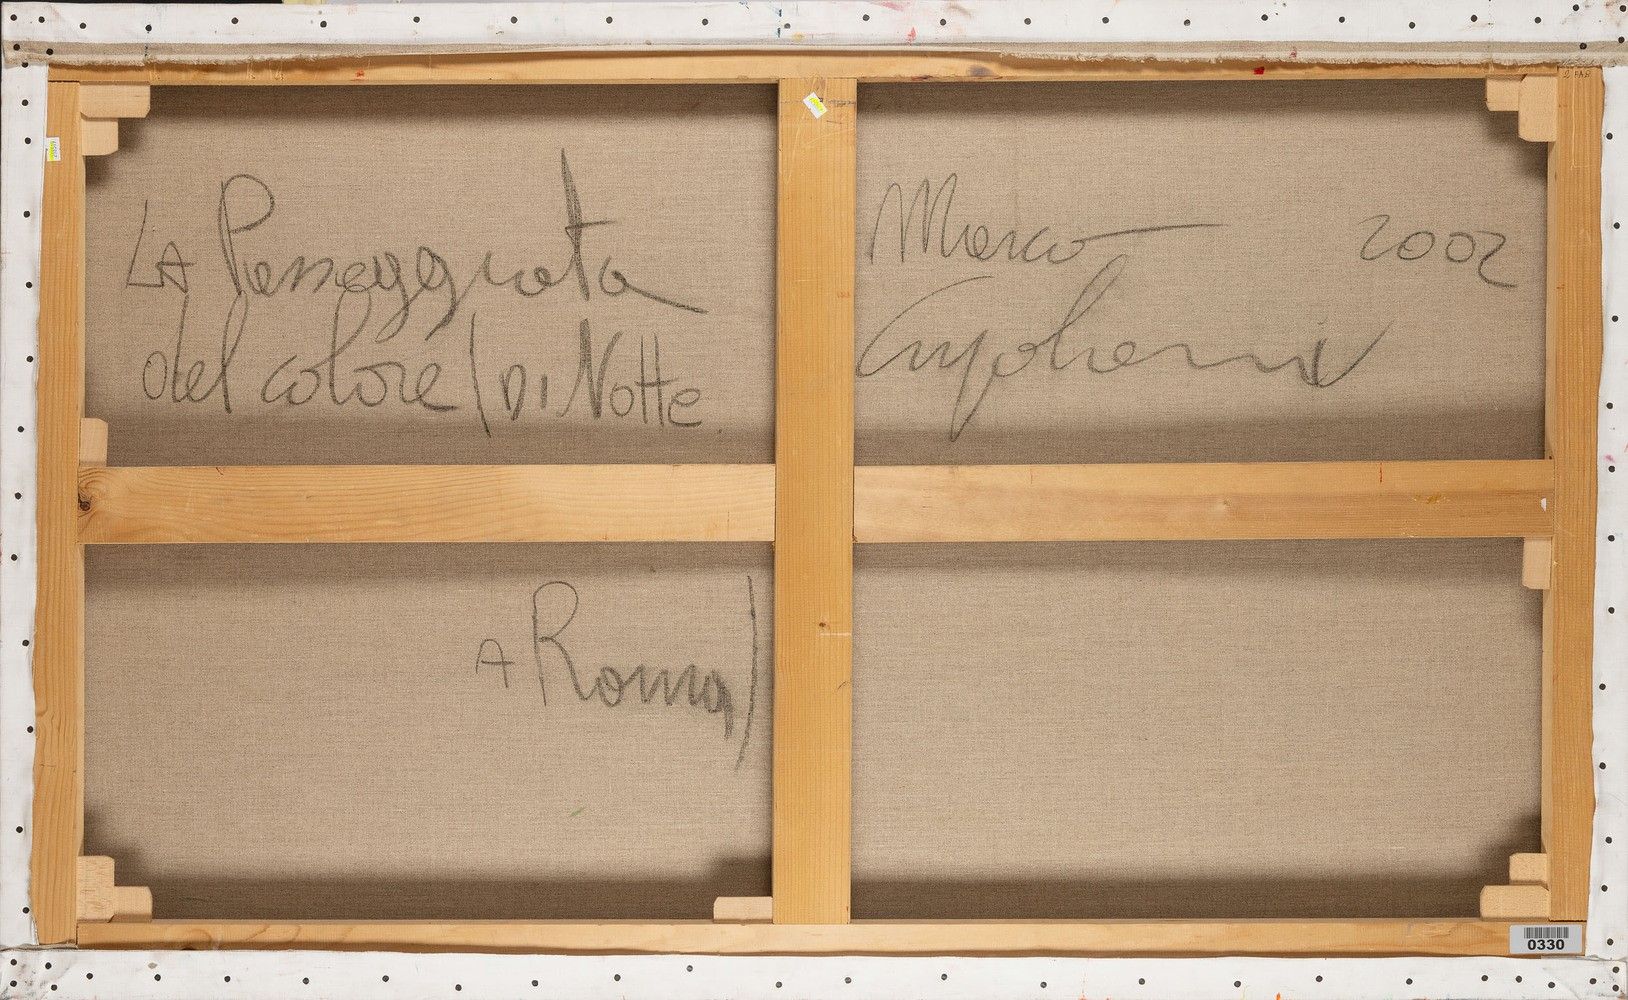 LA Passeggiata
del colore (DI Notte
A Roma)
Marco 2002
0330